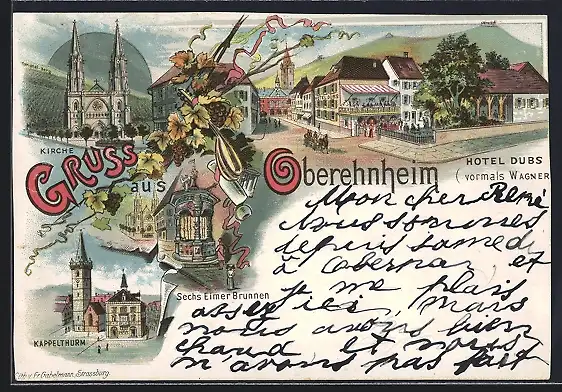 KIRCHE
GRUSS
aus
Oberehnheim
HOTEL DUBS
(vormals WAGNER
Sechs Eimer Brunnen
KAPPELTHURM
Lith. v. Fr. Gabelmann, Strassburg.
Mon cher René
Nous sommes
depuis samedi
à Obernai et
je me plais
assez ici, mais
nous avons bien
chaud et nous
n'avons pas fait